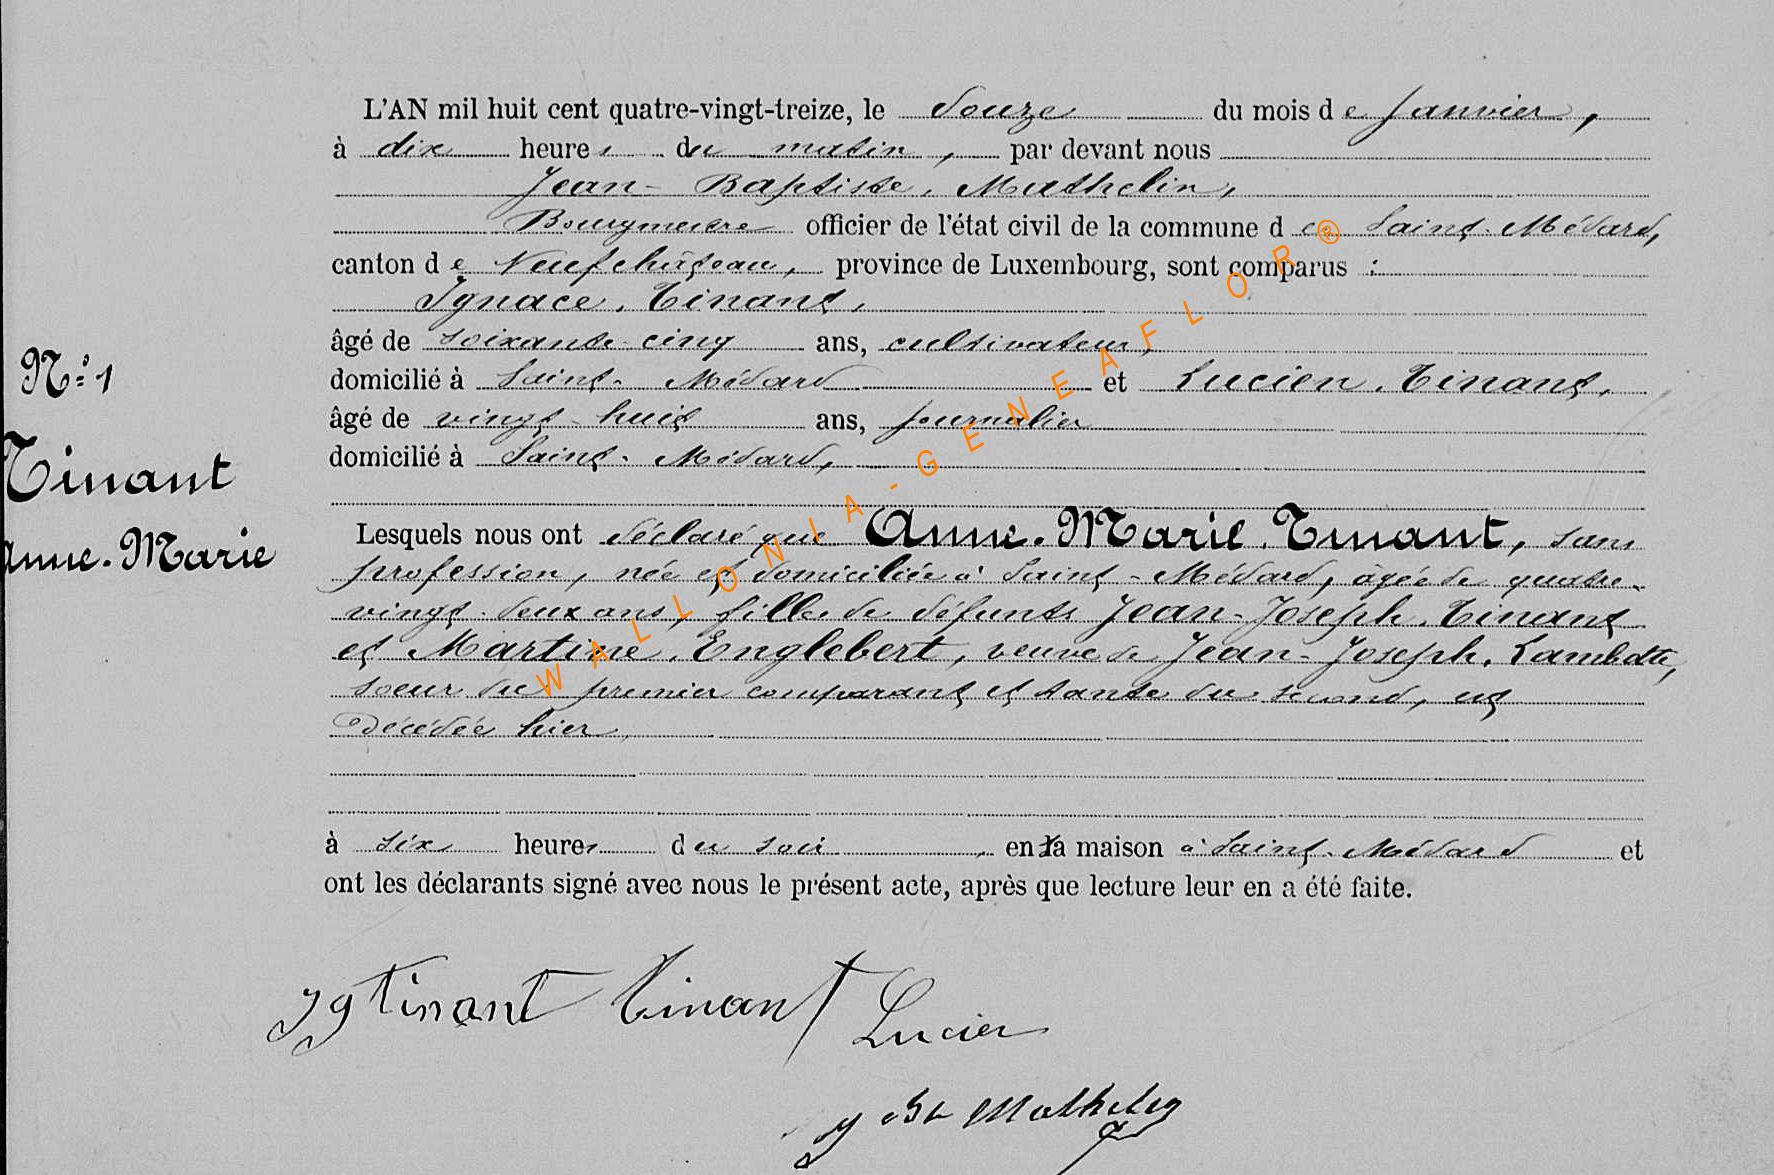 L'AN mil huit cent quatre-vingt-treize, le douze du mois de Janvier,
à dix heures du matin, par devant nous
Jean-Baptiste, Mathelin,
Bourgmestre officier de l'état civil de la commune de Saint-Médard,
canton de Neufchâteau, province de Luxembourg, sont comparus :
Ignace, Tinant,
âgé de soixante-cinq ans, cultivateur,
domicilié à Saint-Médard et Lucien, Tinant,
âgé de vingt-huit ans, journalier
domicilié à Saint-Médard,
N° 1
Tinant
Anne-Marie
Lesquels nous ont déclaré que Anne-Marie, Tinant, sans
profession, née et domiciliée à Saint-Médard, âgée de quatre-
vingt-deux ans, fille de défunts Jean-Joseph, Tinant
et Martine, Englebert, veuve de Jean-Joseph, Lambotte,
soeur du premier comparant et tante du second, est
décédée hier,
à six heures du soir, en sa maison à Saint-Médard et
ont les déclarants signé avec nous le présent acte, après que lecture leur en a été faite.
Ig Tinant Tinant Lucien
J Bt Mathelin
WALLONIA-GENEAFLOR®